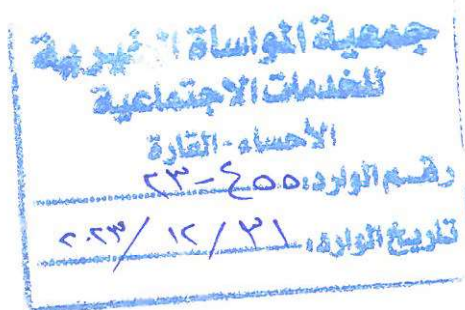 جمعية المواساة الخيرية
للخدمات الاجتماعية
الأحساء - القارة
رقم الوارد: ٤٥٥-٢٣
تاريخ الوارد: ٣١ / ١٢ / ٢٠٢٣